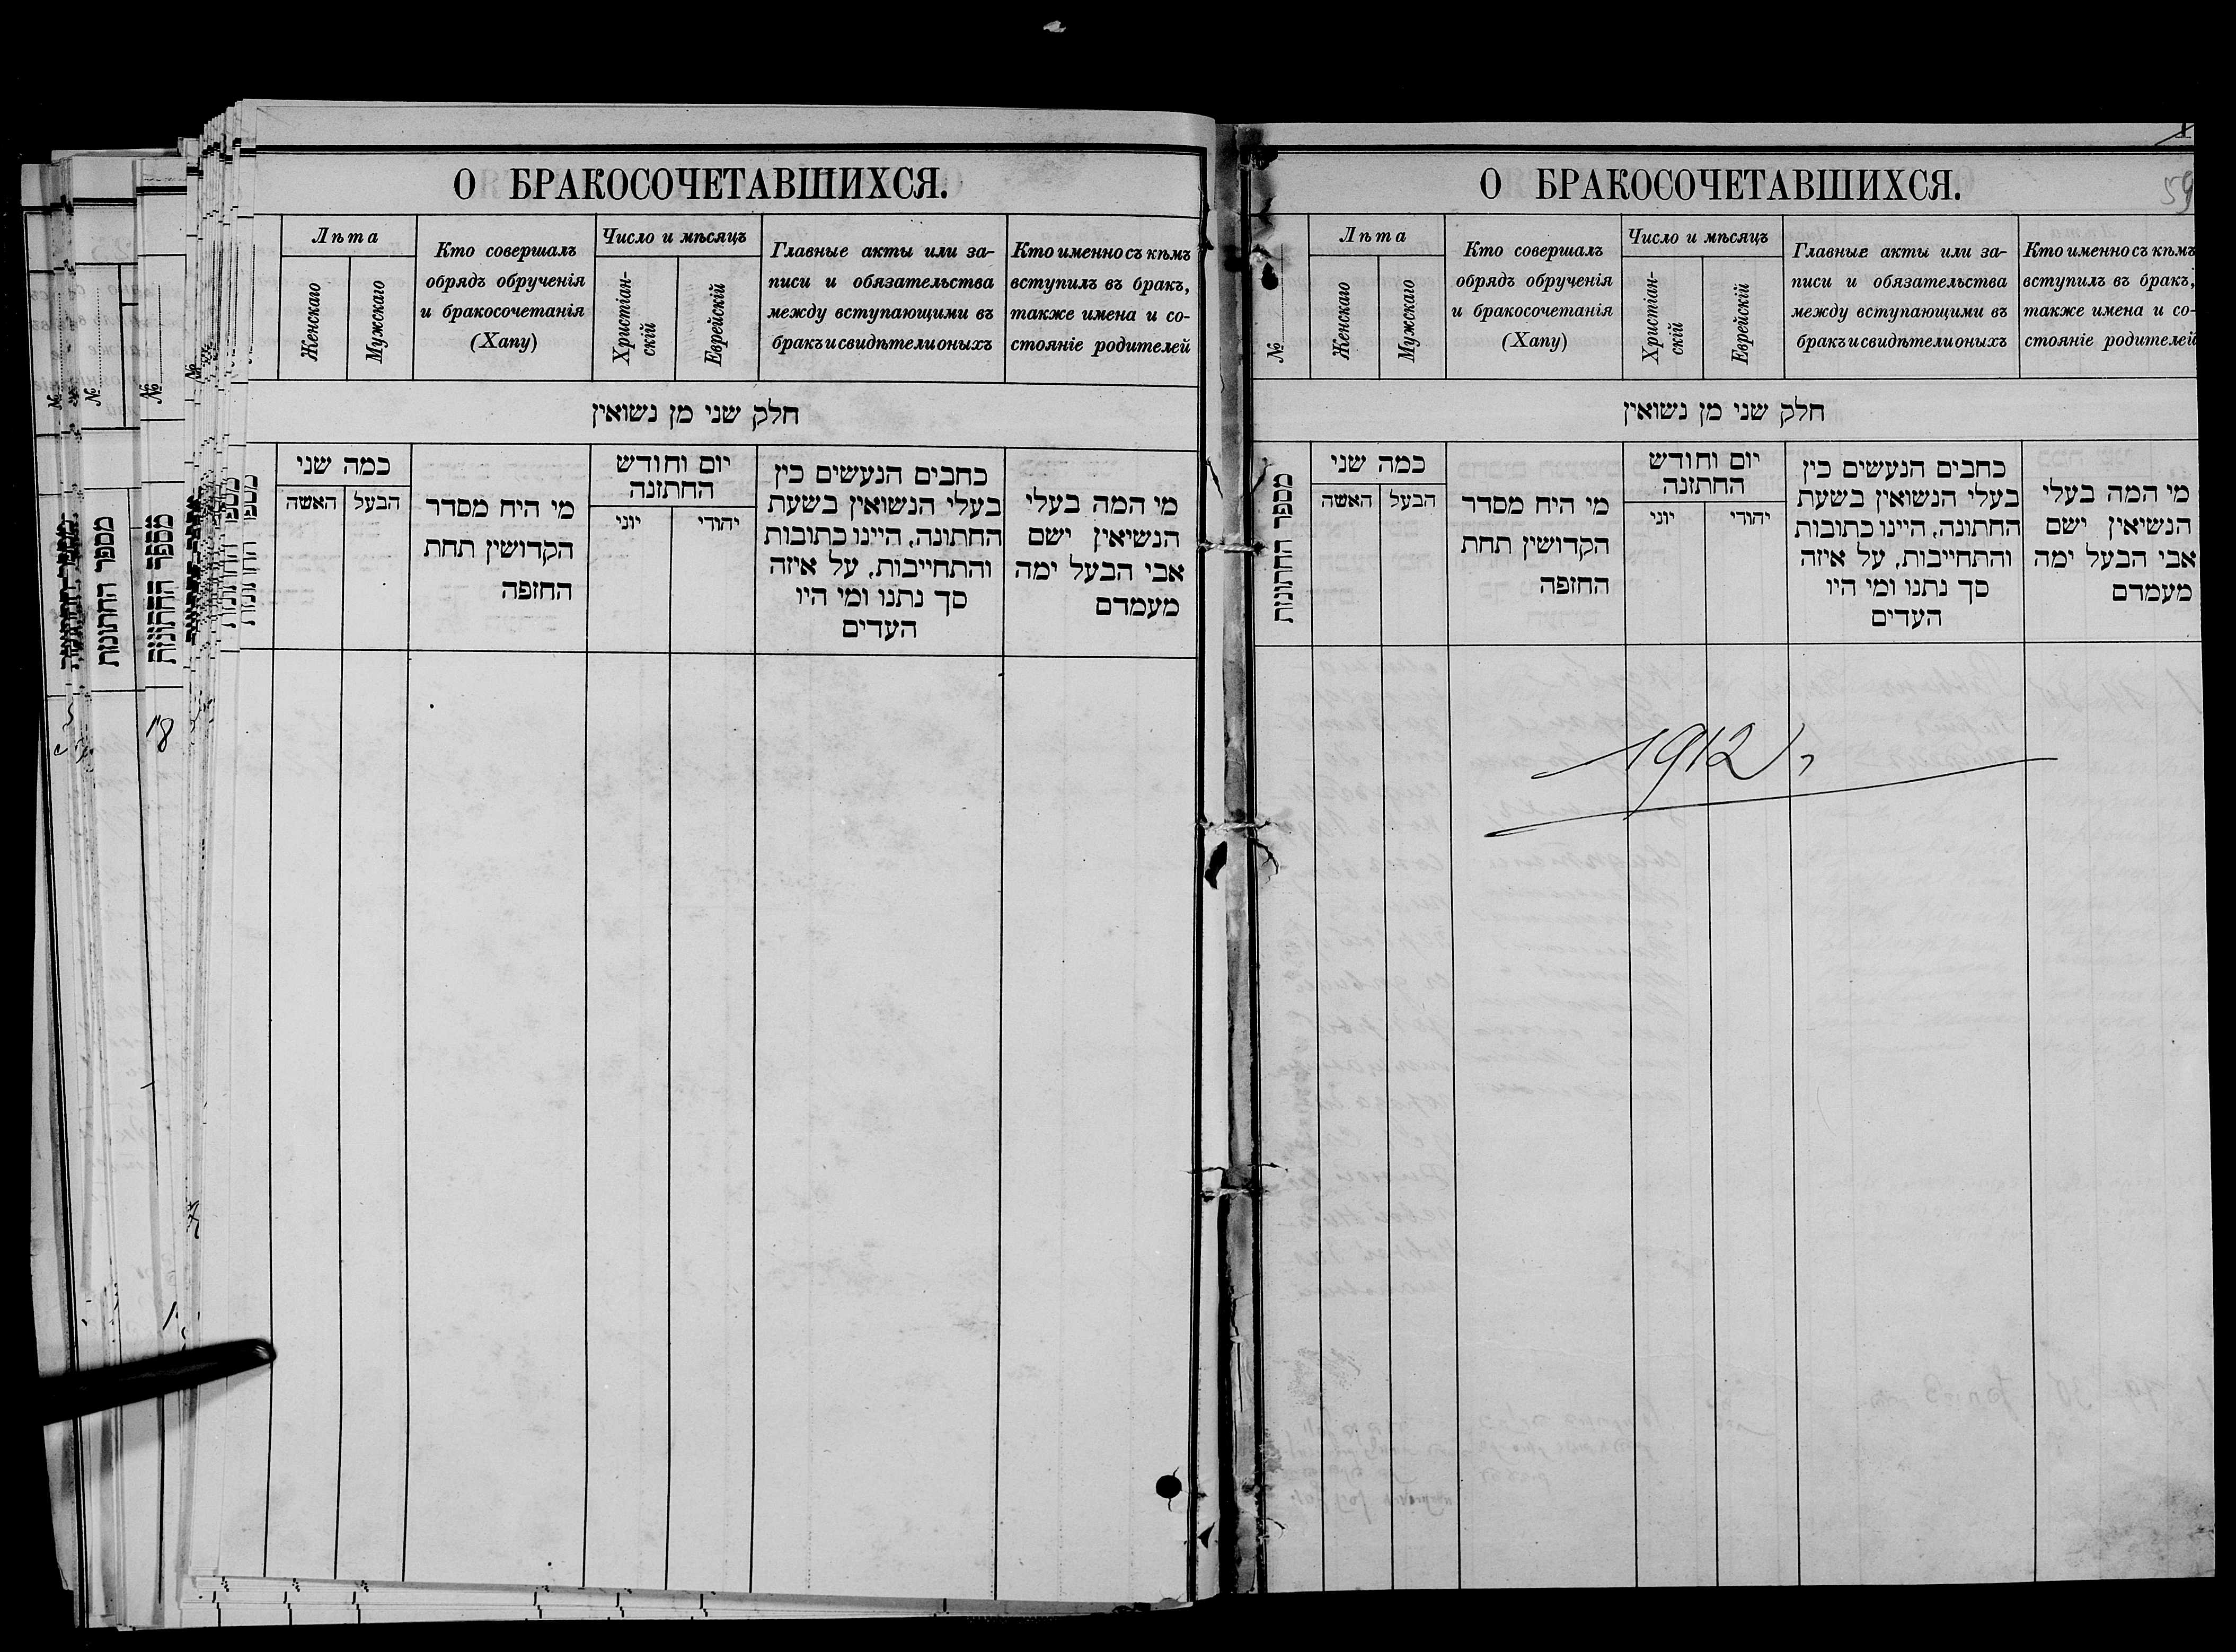 О БРАКОСОЧЕТАВШИХСЯ.
Лѣта
Женскаго
Мужскаго
Кто совершалъ
обрядъ обрученія
и бракосочетанія
(Хапу)
Число и мѣсяцъ
Христіан-
скій
Еврейскій
Главные акты или за-
писи и обязательства
между вступающими въ
бракъ и свидѣтели оныхъ
Кто именно съ кѣмъ
вступилъ въ бракъ,
также имена и со-
стояніе родителей
חלק שני מן נשואין
כמה שני
הבעל
האשה
מי היח מסדר
הקדושין תחת
החזפה
יום וחודש
החתזנה
יוני
יהודי
כחבים הנעשים כין
בעלי הנשואין בשעת
החתונה, היינו כתובות
והתחייבות, על איזה
סך נתנו ומי היו
העדים
מי המה בעלי
הנשיאין ישם
אבי הבעל ימה
מעמדם
№
№
מספר החתונות
מספר החתונות
18
О БРАКОСОЧЕТАВШИХСЯ.
59
№
Лѣта
Женскаго
Мужскаго
Кто совершалъ
обрядъ обрученія
и бракосочетанія
(Хапу)
Число и мѣсяцъ
Христіан-
скій
Еврейскій
Главные акты или за-
писи и обязательства
между вступающими въ
бракъ и свидѣтели оныхъ
Кто именно съ кѣмъ
вступилъ въ бракъ,
также имена и со-
стояніе родителей
חלק שני מן נשואין
מספר החתונות
כמה שני
הבעל
האשה
מי היח מסדר
הקדושין תחת
החזפה
יום וחודש
החתזנה
יוני
יהודי
כחבים הנעשים כין
בעלי הנשואין בשעת
החתונה, היינו כתובות
והתחייבות, על איזה
סך נתנו ומי היו
העדים
מי המה בעלי
הנשיאין ישם
אבי הבעל ימה
מעמדם
1912 г